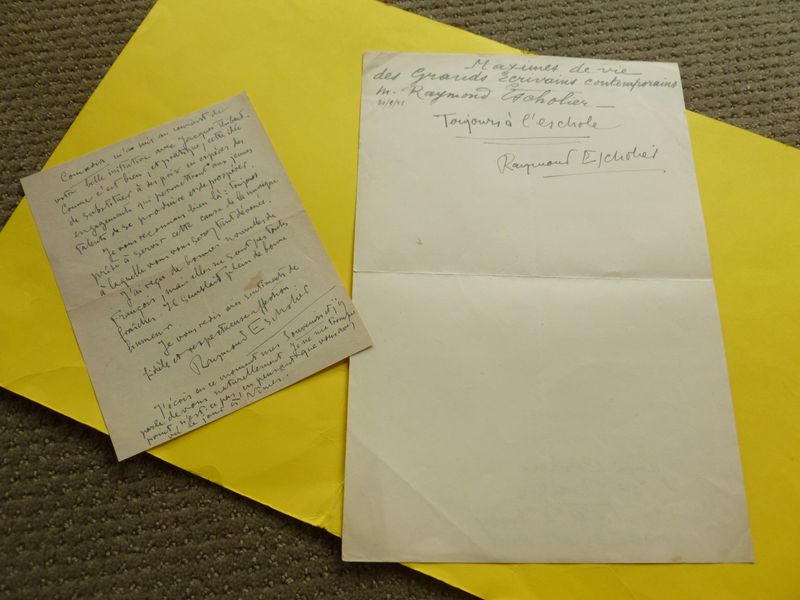 m'a mis au courant de
votre belle initiative avec Jacques Thibaud.
Comme c'est bien, et pratique, cette idée
de substituer à des prix en espèces des
engagements qui permettront aux jeunes
talents de se produire et de prospérer.
Je vous reconnais bien là : toujours
prête à servir cette cause de la musique
à laquelle vous vous serez tant dévouée.
J'ai reçu de bonnes nouvelles de
François, mais elles ne sont pas toutes
fraîches. Il semblait plein de bonne
humeur.
Je vous redis mes sentiments de
fidèle et respectueuse affection.
Raymond Escholier
J'écris en ce moment mes souvenirs et j'y
parle de vous naturellement. Je ne me trompe
point, n'est-ce pas, en pensant que vous avez
le jour à Nîmes.
Maximes de vie
des Grands Écrivains contemporains
M. Raymond Escholier
Toujours à l'eschole
Raymond Escholier